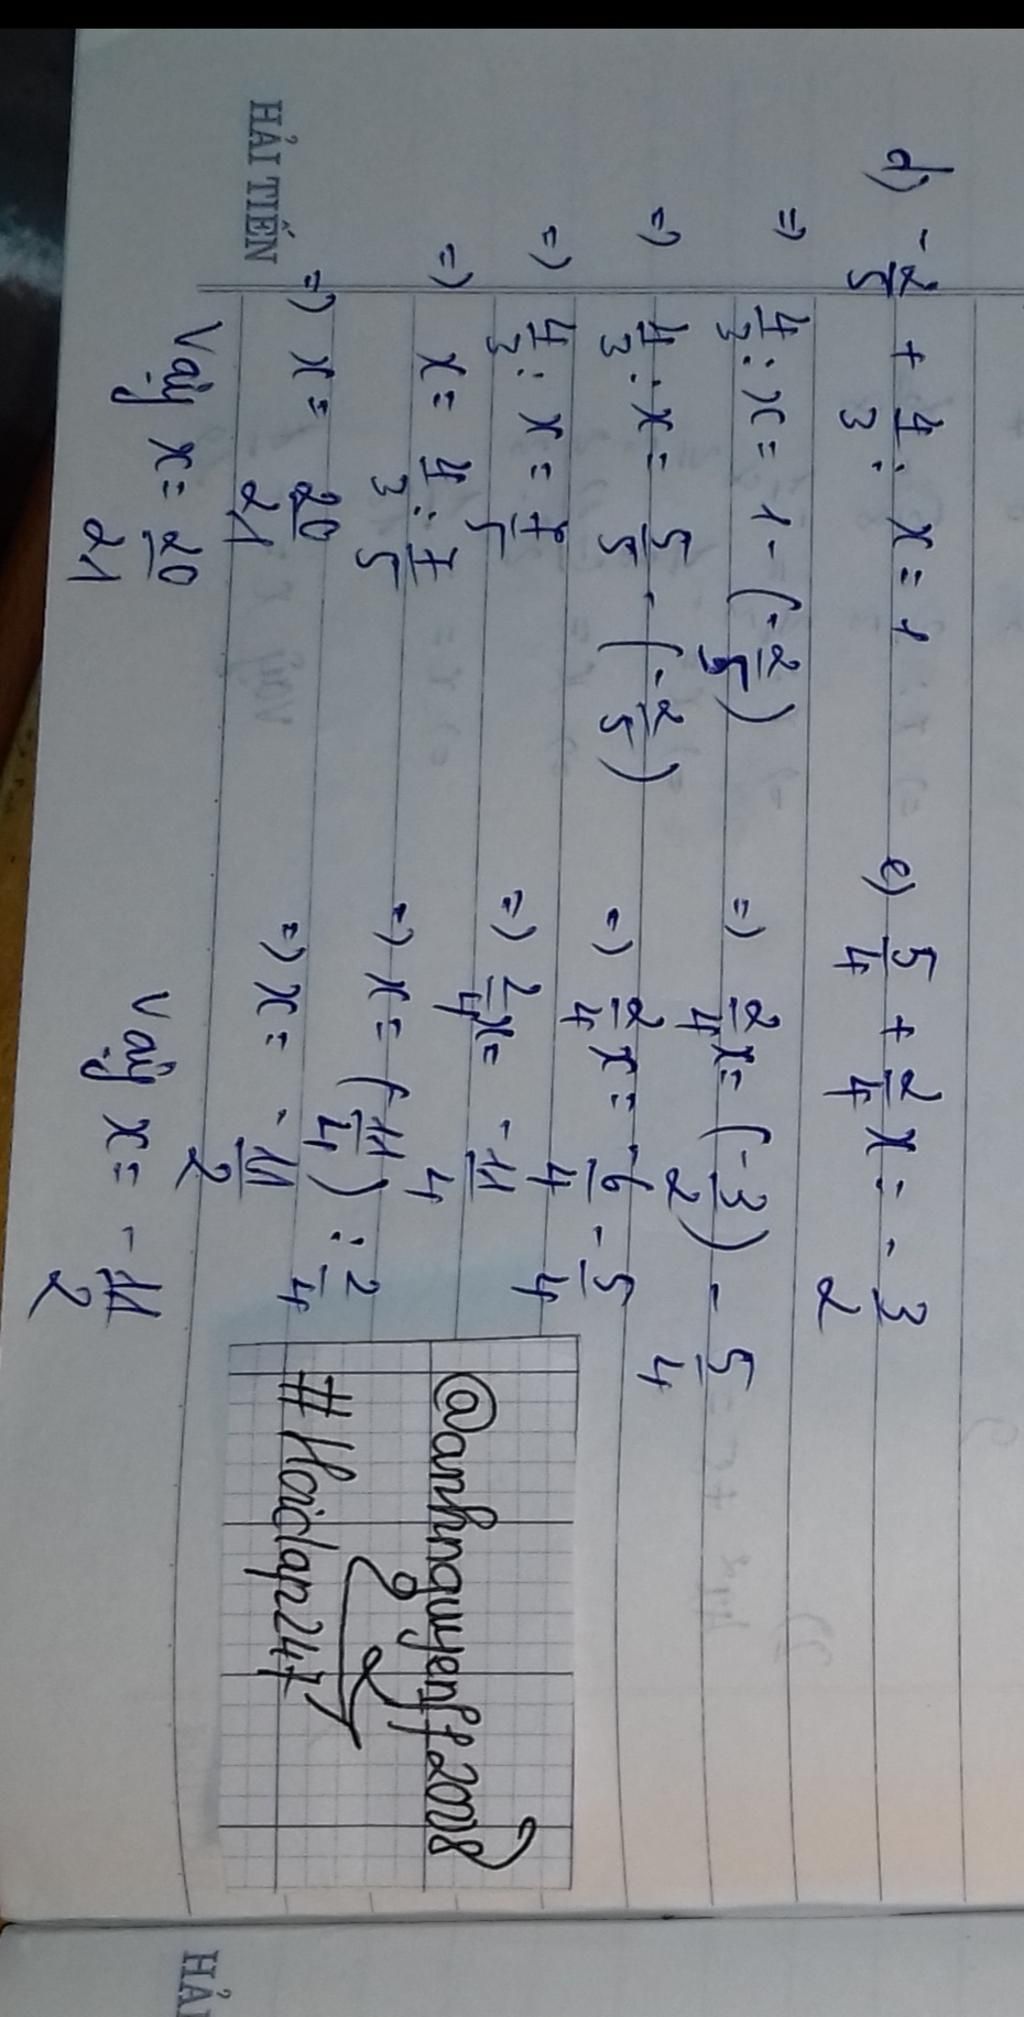 d) -2/5 + 4/3 : x = 1
=) 4/3 : x = 1 - (-2/5)
=) 4/3 : x = 5/5 - (-2/5)
=) 4/3 : x = 7/5
=) x = 4/3 : 7/5
=) x = 20/21
Vậy x = 20/21
e) 5/4 + 2/4 x = -3/2
=) 2/4 x = (-3/2) - 5/4
=) 2/4 x = -6/4 - 5/4
=) 2/4 x = -11/4
=) x = (-11/4) : 2/4
=) x = -11/2
Vậy x = -11/2
@anhnguyenff2008
#Hoidap247
HẢI TIẾN
HẢ